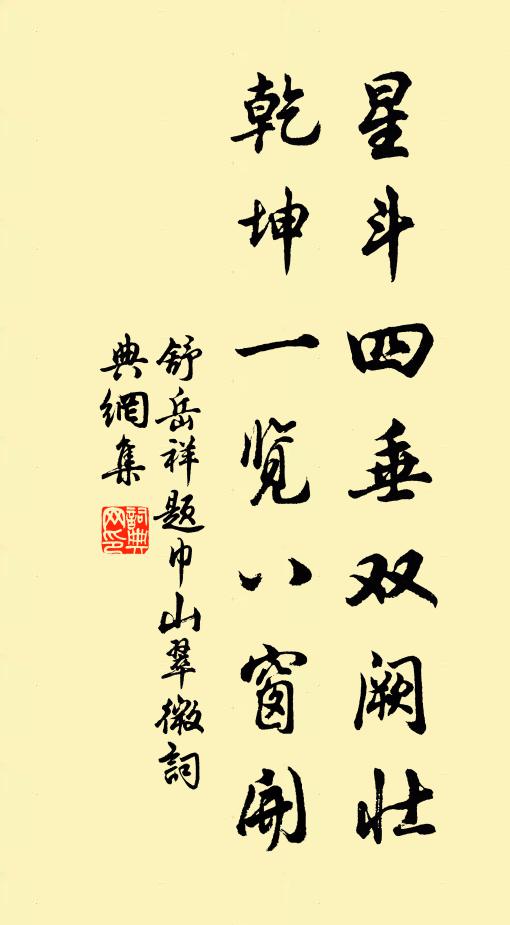 星斗四垂双阙壮
乾坤一览八窗開
舒岳祥题巾山翠微詞
典網集
詞典网印